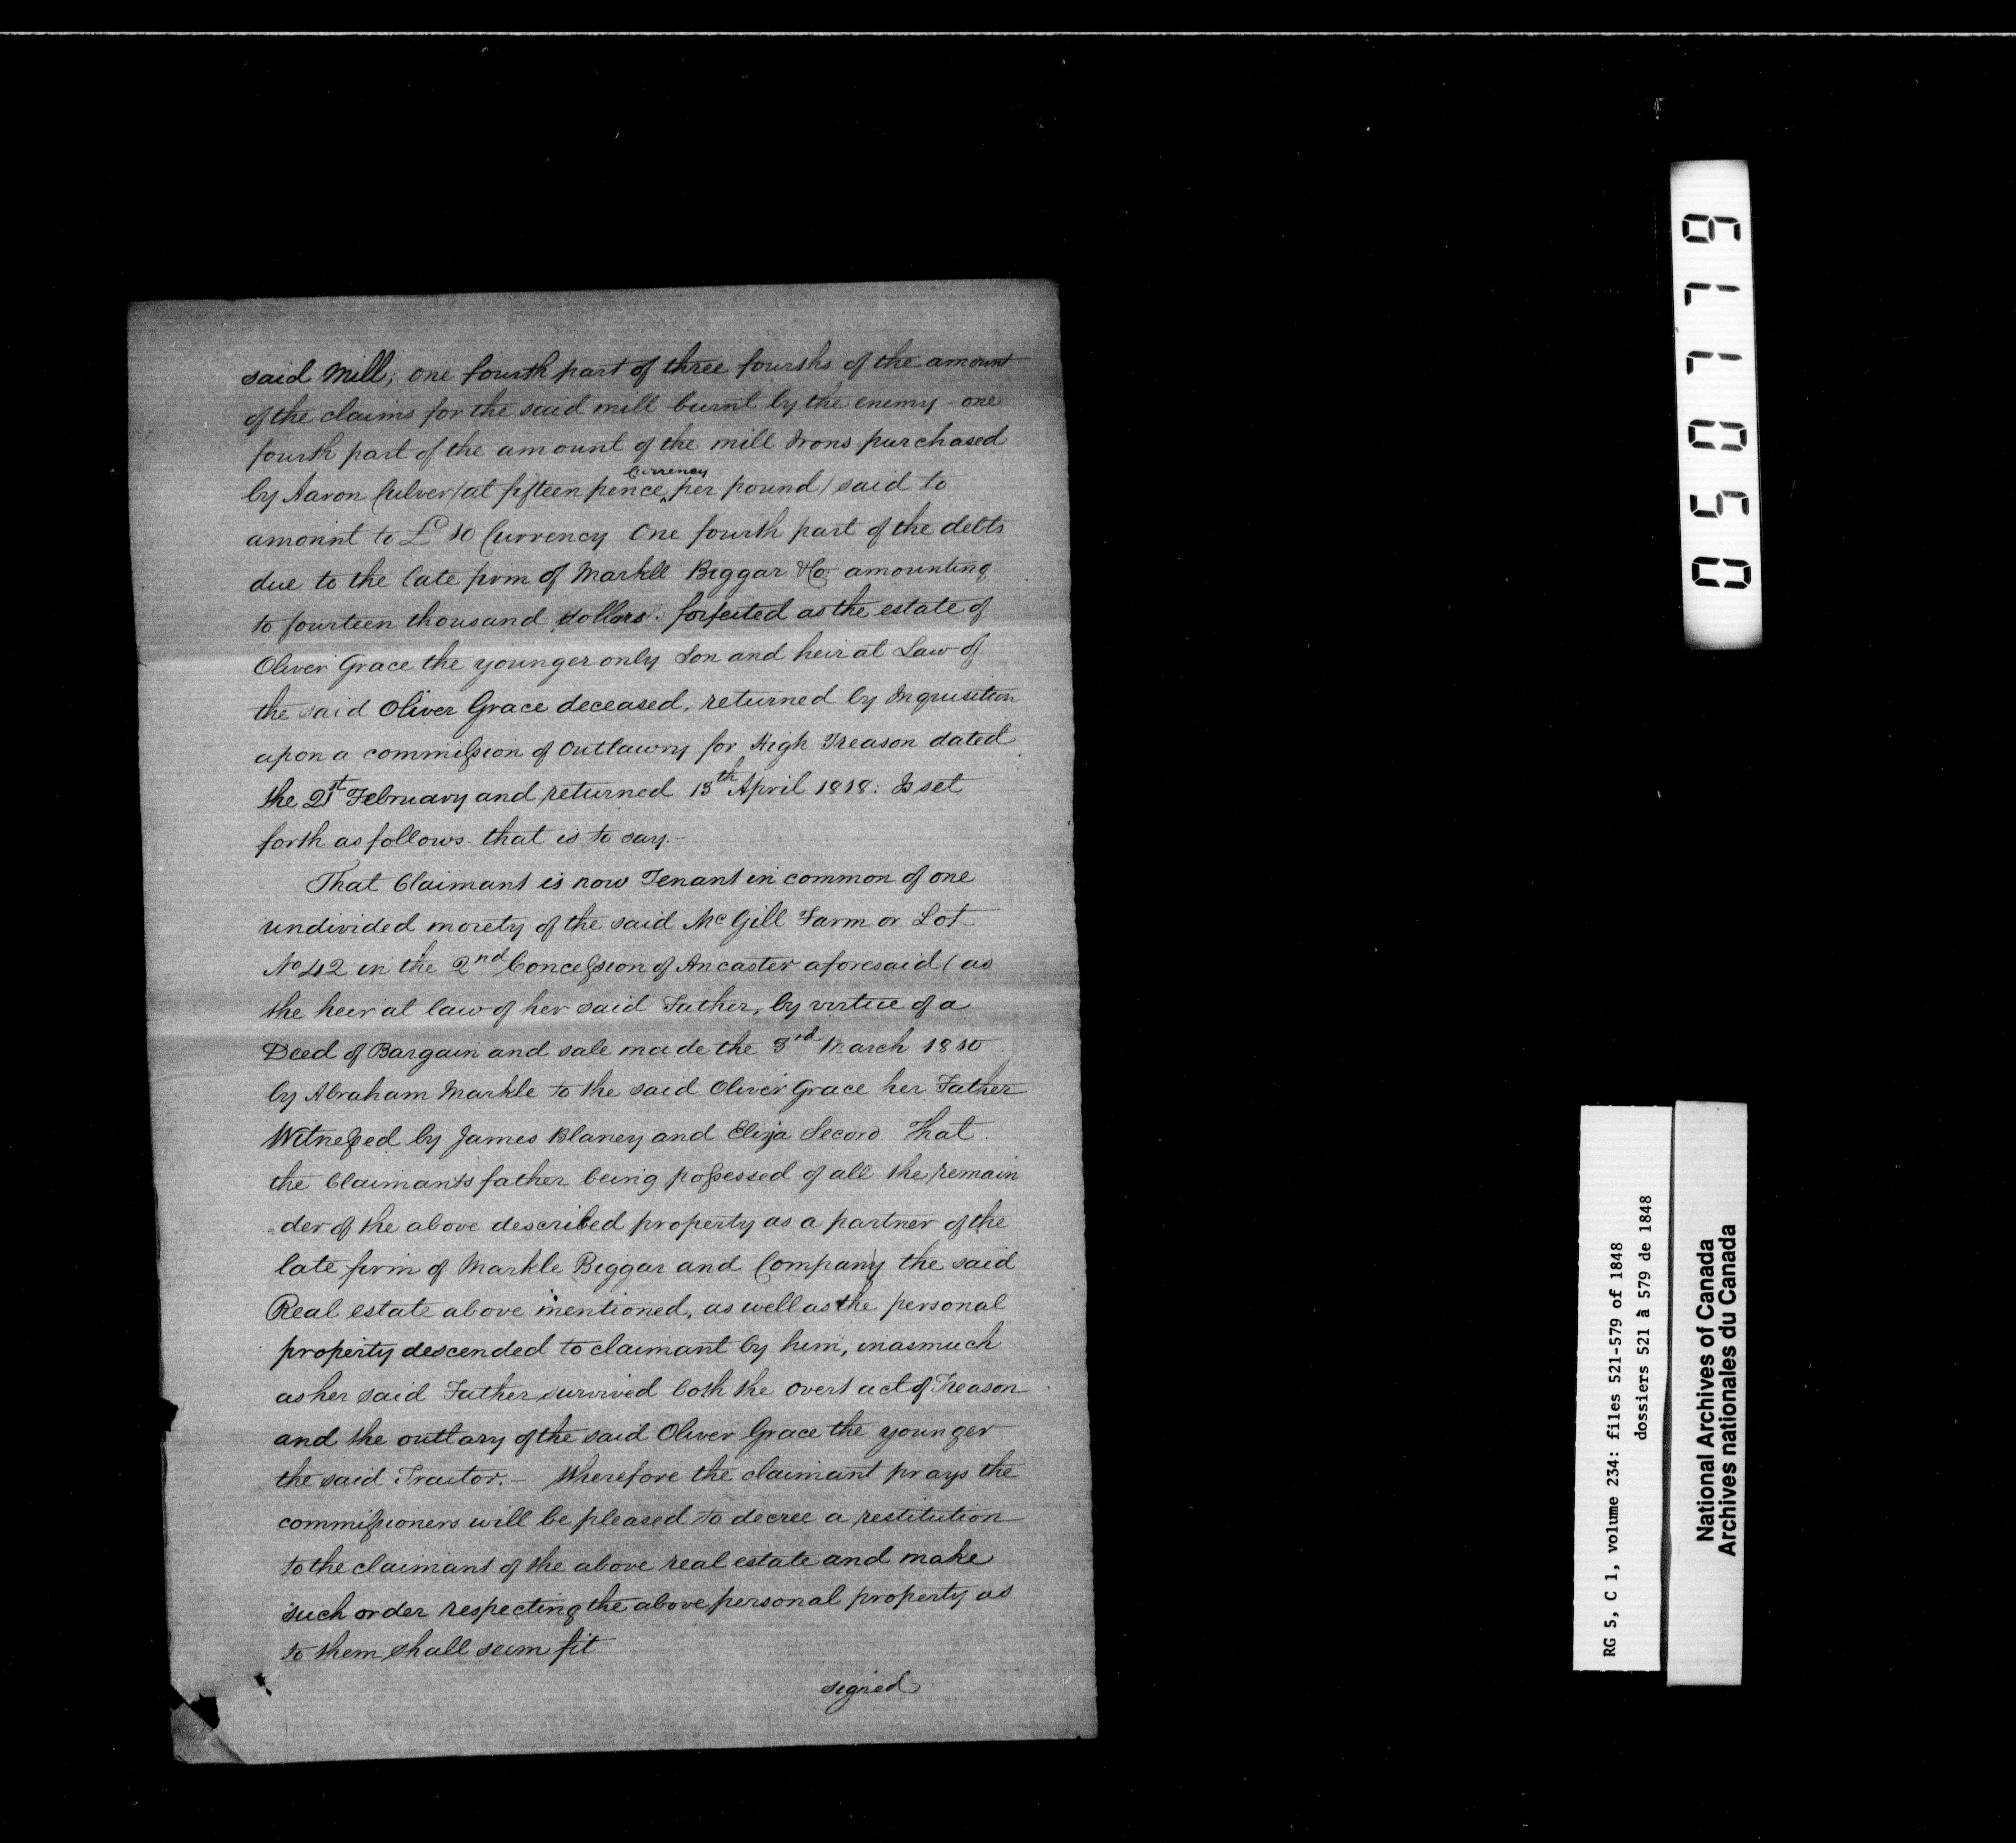 said Mill; one fourth part of three fourths of the amount
of the claims for the said mill burnt by the enemy - one
fourth part of the amount of the mill Irons purchased
Currency
by Aaron Culver (at fifteen pence ‸ per pound) said to
amount to £ 10 Currency One fourth part of the debts
due to the late firm of Markle Biggar & Co. amounting
to fourteen thousand dollars. forfeited as the estate of
Oliver Grace the younger only Son and heir at Law of
the said Oliver Grace deceased, returned by Inquisition
upon a commission of Outlawry for High Treason dated
the 21st February and returned 13th April 1818: Is set
forth as follows that is to say.-
That Claimant is now Tenant in common of one
undivided moiety of the said McGill Farm or Lot
No 42 in the 2nd Concession of Ancaster aforesaid (as
the heir at law of her said Father, by virtue of a
Deed of Bargain and sale made the 3rd March 1810
by Abraham Markle to the said Oliver Grace her Father
Witnessed by James Blaney and Eliza Secord That
the Claimants father being possessed of all the remain
=der of the above described property as a partner of the
late firm of Markle Biggar and Company the said
Real estate above mentioned, as well as the personal
property descended to claimant by him, inasmuch
as her said Father survived both the overt act of Treason
and the outlary of the said Oliver Grace the younger
the said Traitor.- Wherefore the claimant prays the
commissioners will be pleased to decree a restitution
to the claimant of the above real estate and make
such order respecting the above personal property as
to them shall seem fit
signed
050779
RG 5, C 1, volume 234: files 521-579 of 1848
dossiers 521 à 579 de 1848
National Archives of Canada
Archives nationales du Canada